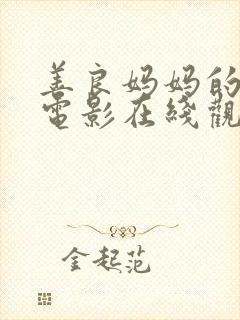 善良妈妈的
電影在綫觀
金起范